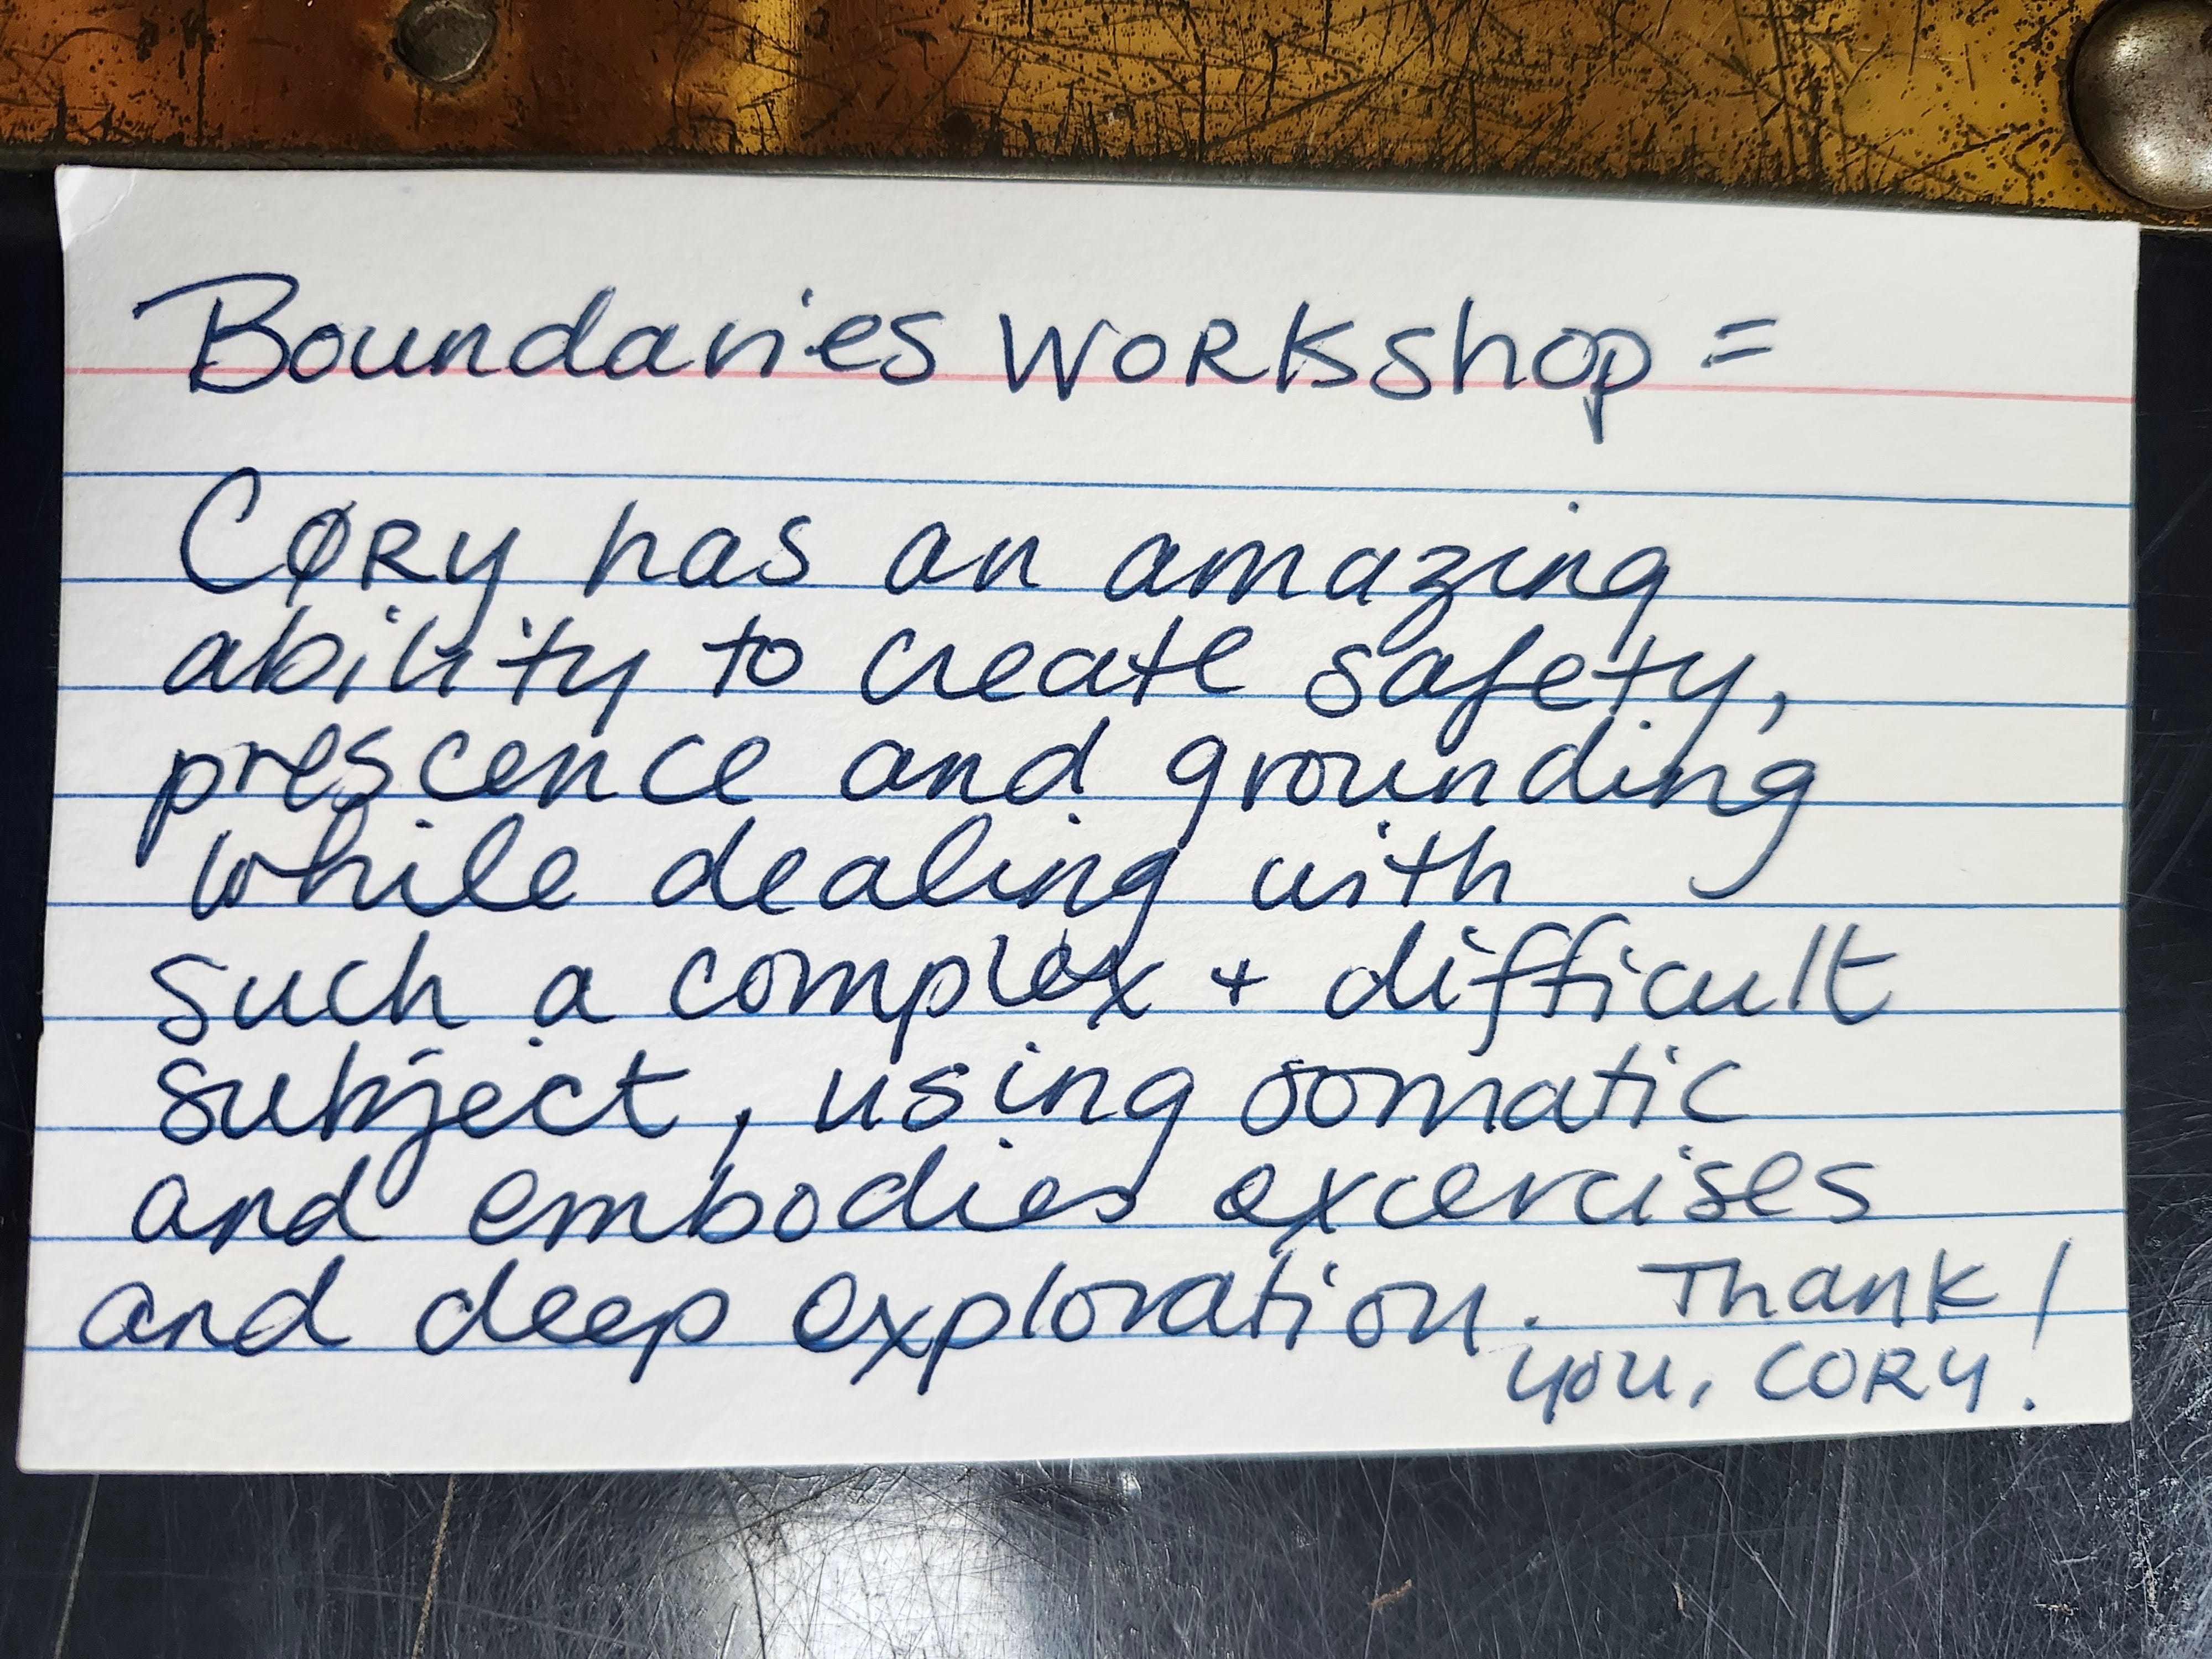 Boundaries Workshop =
Cory has an amazing
ability to create safety,
prescence and grounding
while dealing with
such a complex + difficult
subject, using somatic
and embodies excercises
and deep exploration. Thank
you, CORY!